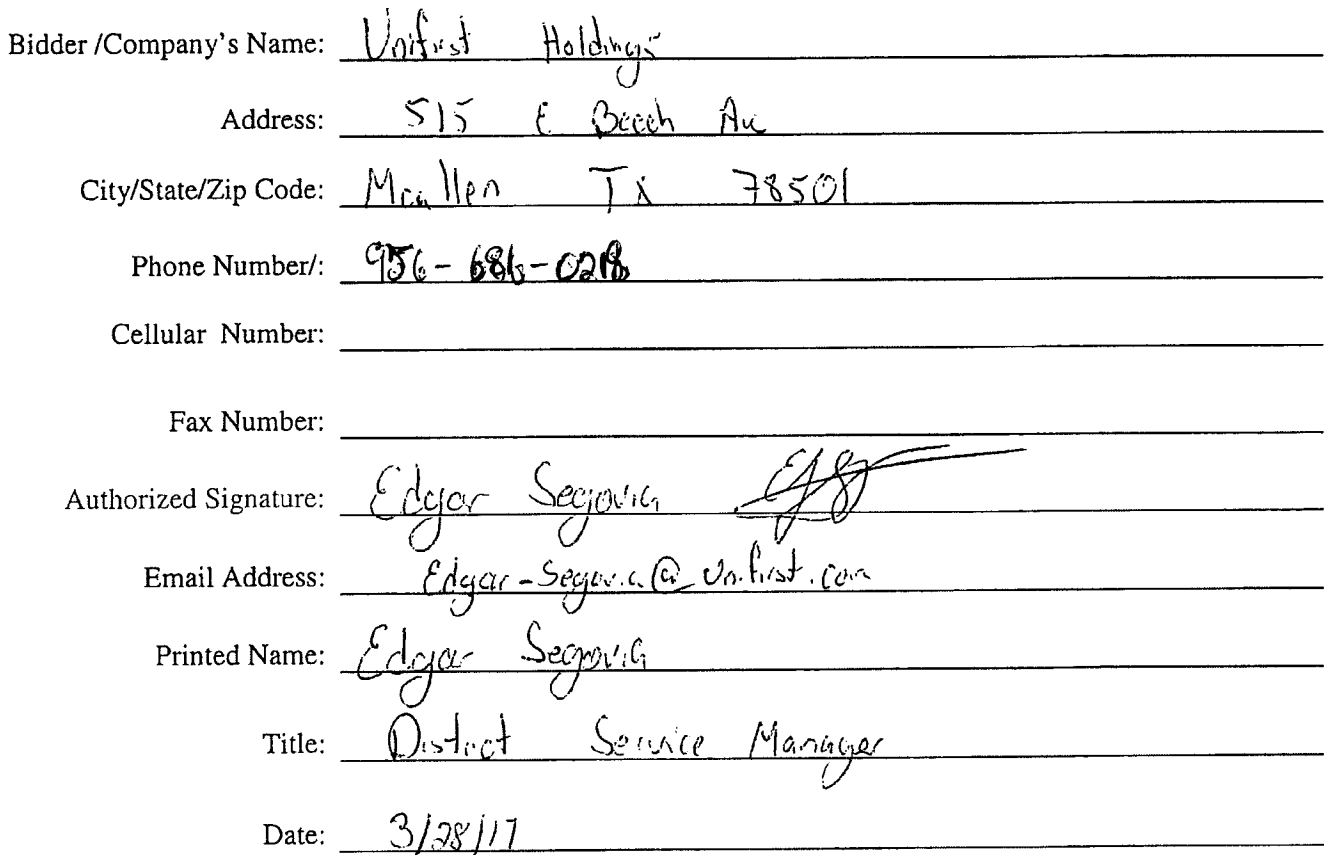 Bidder /Company's Name: Unifirst Holdings
Address: 515 E Beech Av
City/State/Zip Code: Mcallen Tx 78501
Phone Number/: 956-686-0218
Cellular Number:
Fax Number:
Authorized Signature: Edgar Segovia
Email Address: Edgar-Segovia@Unifirst.com
Printed Name: Edgar Segovia
Title: District Service Manager
Date: 3/28/17